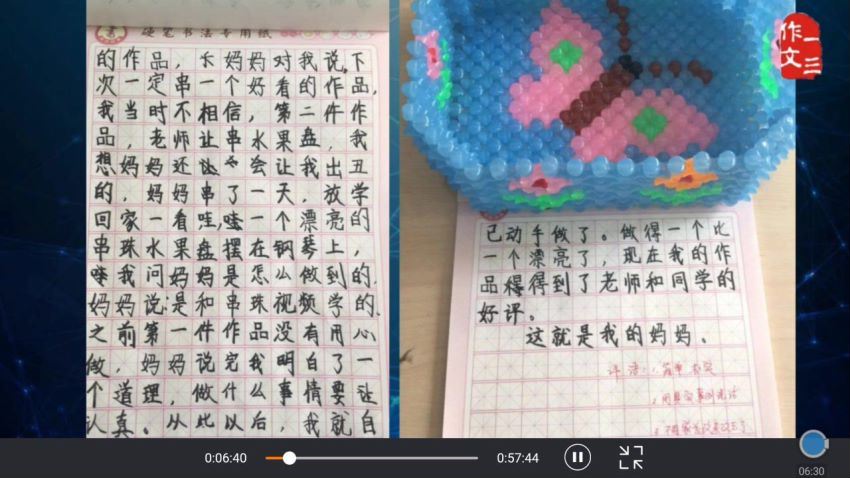 硬笔书法专用纸
的作品，长妈妈对我说，下
次一定串一个好看的作品，
我当时不相信，第二件作
品，老师让串水果盘，我
想妈妈还让会让我出丑
的，妈妈串了一天，放学
回家一看哇，哇一个漂亮的
串珠水果盘摆在钢琴上，
我问妈妈是怎么做到的，
妈妈说是和串珠视频学的，
之前第一件作品没有用心
做，妈妈说完我明白了一
个道理，做什么事情要让
认真。从此以后，我就自
已动手做了。做得一个比
一个漂亮了，现在我的作
品得得到了老师和同学的
好评。
这就是我的妈妈。
作文
一三
0:06:40
0:57:44
06:30